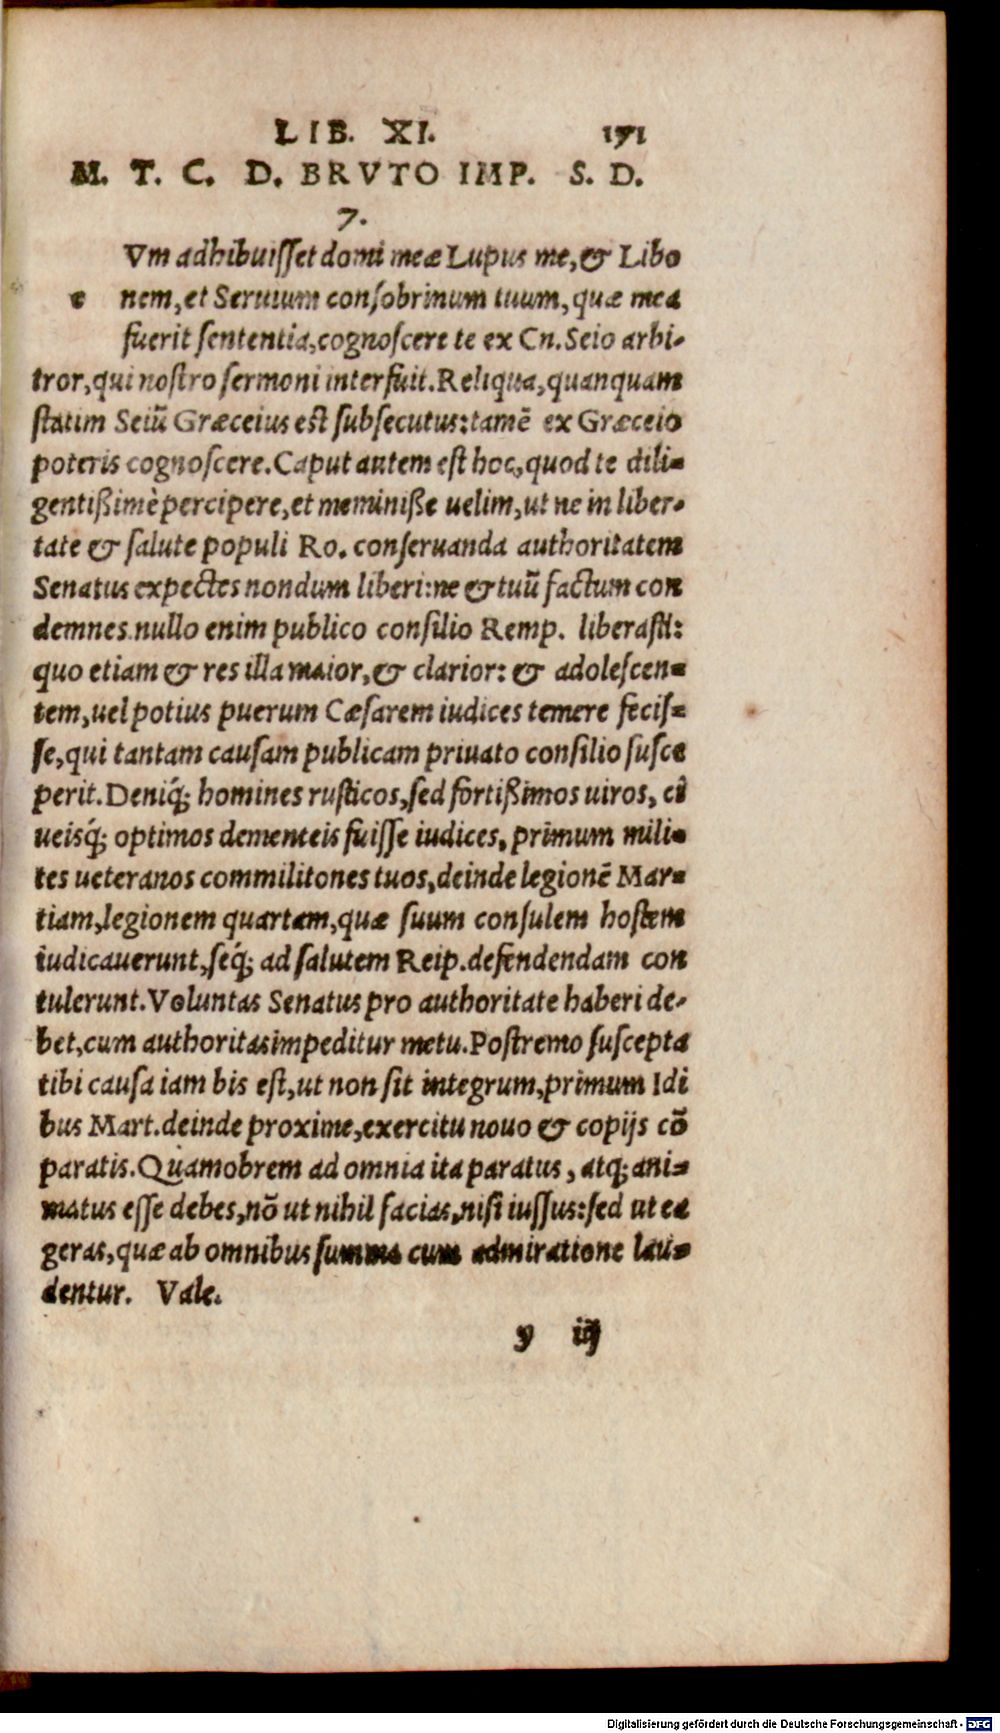 LIB. XI. 171
M. T. C. D. BRVTO IMP. S. D.
7.
Vm adhibuisset domi meæ Lupus me, & Libo
c nem, et Seruium consobrinum tuum, quæ mea
fuerit sententia, cognoscere te ex Cn. Seio arbi-
tror, qui nostro sermoni interfuit. Reliqua, quanquam
statim Seiũ Græceius est subsecutus: tamẽ ex Græceio
poteris cognoscere. Caput autem est hoc, quod te dili-
gentißimè percipere, et meminiße uelim, ut ne in liber-
tate & salute populi Ro. conseruanda authoritatem
Senatus expectes nondum liberi: ne & tuũ factum con
demnes. nullo enim publico consilio Remp. liberasti:
quo etiam & res illa maior, & clarior: & adolescen-
tem, uel potius puerum Cæsarem iudices temere fecis-
se, qui tantam causam publicam priuato consilio susce
perit. Deniq́; homines rusticos, sed fortißimos uiros, ci
ueisq́; optimos dementeis fuisse iudices, primum mili-
tes ueteranos commilitones tuos, deinde legionẽ Mar-
tiam, legionem quartam, quæ suum consulem hostem
iudicauerunt, seq́; ad salutem Reip. defendendam con
tulerunt. Voluntas Senatus pro authoritate haberi de-
bet, cum authoritas impeditur metu. Postremo suscepta
tibi causa iam bis est, ut non sit integrum, primum Idi
bus Mart. deinde proxime, exercitu nouo & copijs cõ
paratis. Quamobrem ad omnia ita paratus, atq; ani-
matus esse debes, nõ ut nihil facias, nisi iussus: sed ut ea
geras, quæ ab omnibus summa cum admiratione lau-
dentur. Vale.
y iij
Digitalisierung gefördert durch die Deutsche Forschungsgemeinschaft - DFG